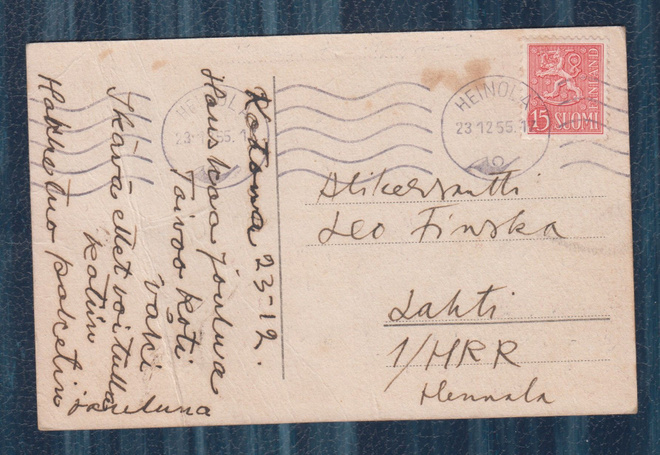 Kotona 23-12.
Hauskaa joulua
Toivoo Koti
väki
Ikävä ettet voi tulla
kotiin
jouluna
HEINOLA
23.12.55.1
HEINOLA
23.12.55.1
15 SUOMI
FINLAND
Alikersantti
Leo Finska
Lahti
1/HRR
Hennala